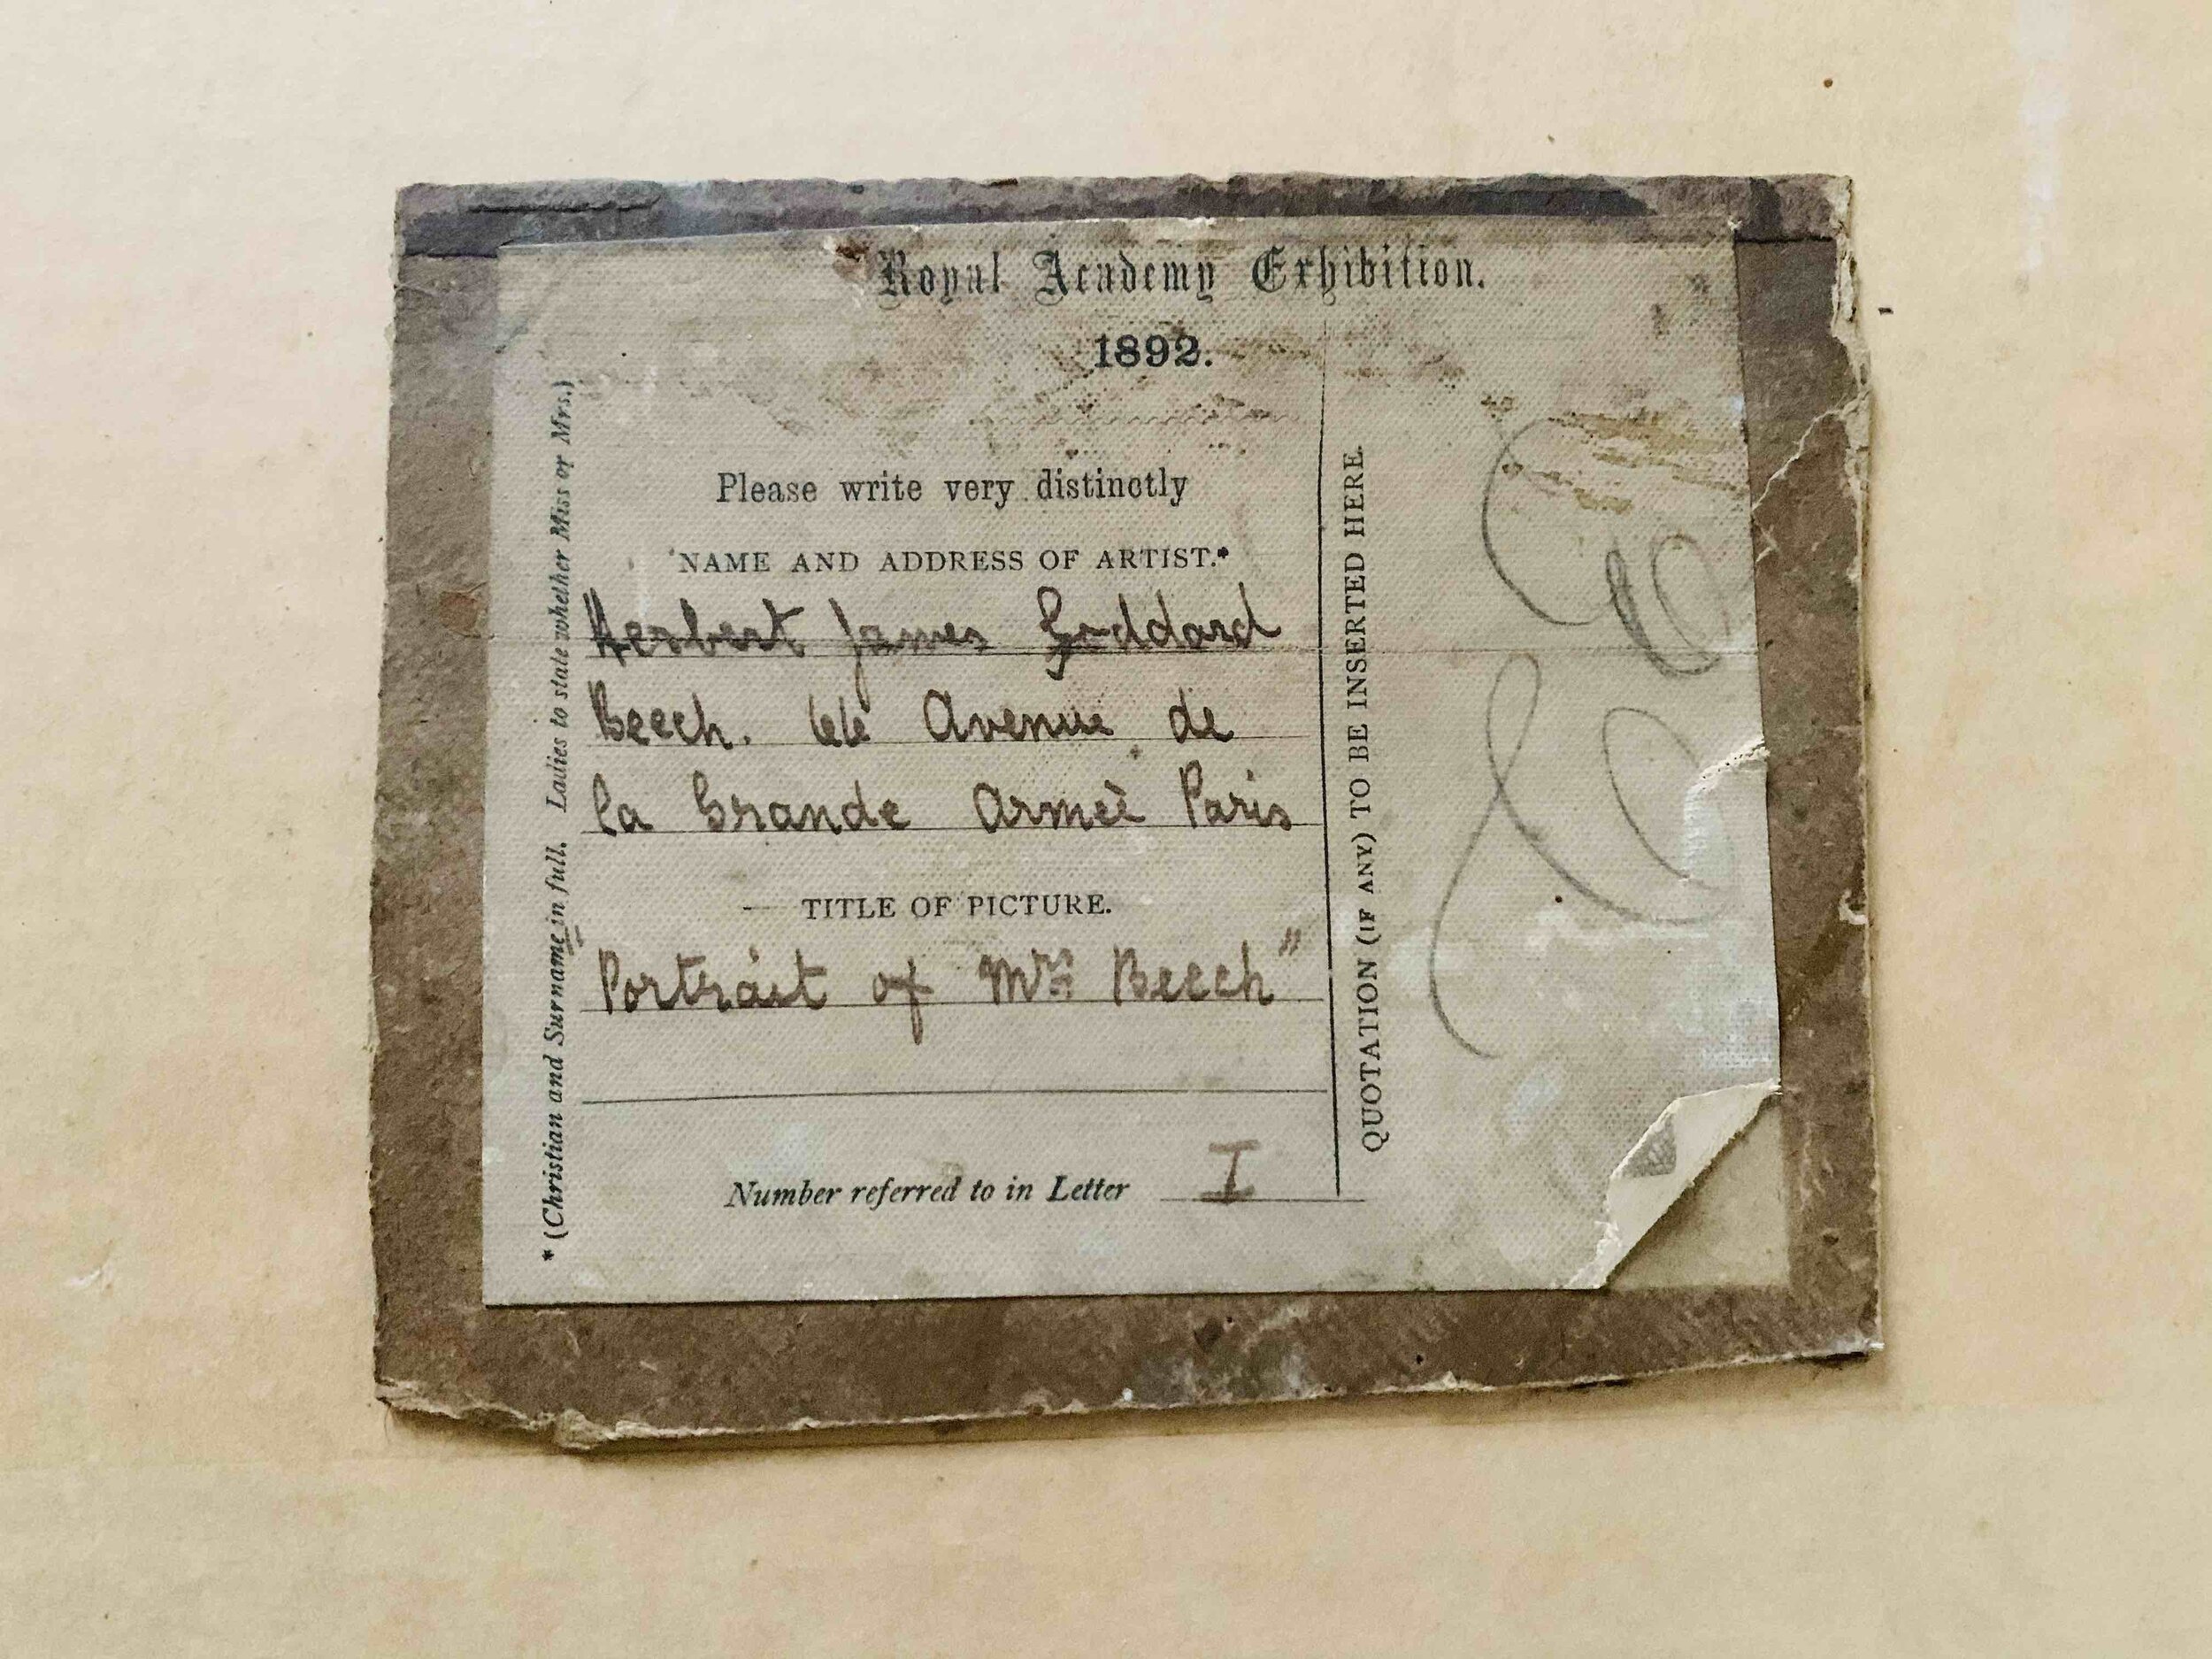 Royal Academy Exhibition.
1892.
Please write very distinctly
NAME AND ADDRESS OF ARTIST.*
Herbert James Goddard
Beech. 66 Avenue de
la Grande Armeè Paris
TITLE OF PICTURE.
Portrait of Mrs Beech"
Number referred to in Letter I
* (Christian and Surname in full. Ladies to state whether Miss or Mrs.)
QUOTATION (IF ANY) TO BE INSERTED HERE.